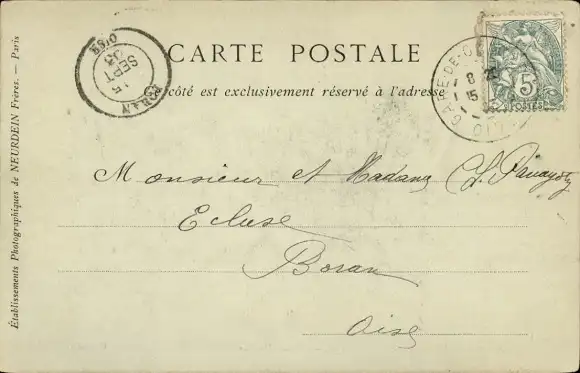 CARTE POSTALE
côté est exclusivement réservé à l'adresse
BORAN
15
SEPT
03
OISE
GARE-DE-
8
15
OI
5
POSTES
Monsieur et Madame
Ecluse
Boran
Oise
Établissements Photographiques de NEURDEIN Frères. — Paris